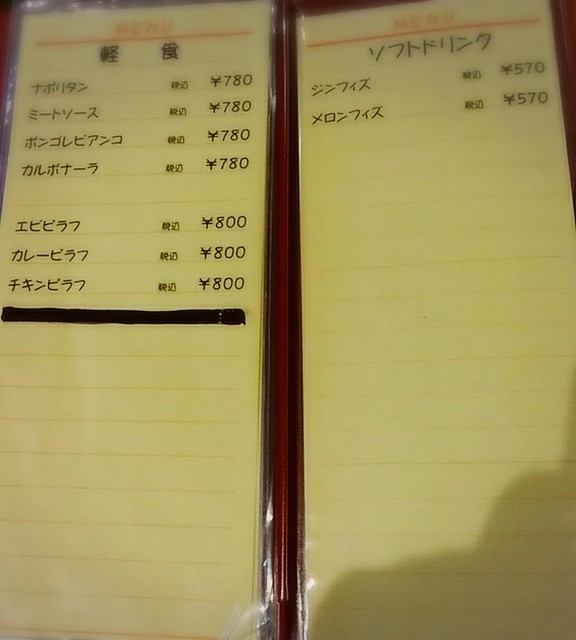 MENU
軽 食
ナポリタン 税込 ¥780
ミートソース 税込 ¥780
ボンゴレビアンコ 税込 ¥780
カルボナーラ 税込 ¥780
エビピラフ 税込 ¥800
カレーピラフ 税込 ¥800
チキンピラフ 税込 ¥800
MENU
ソフトドリンク
ジンフィズ 税込 ¥570
メロンフィズ 税込 ¥570